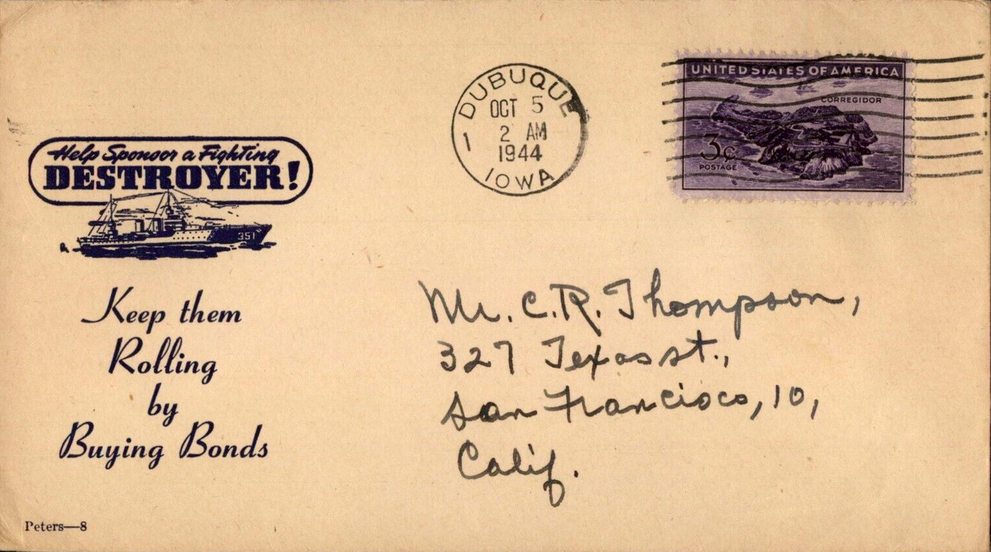 Help Sponsor a Fighting
DESTROYER!
351
Keep them
Rolling
by
Buying Bonds
Peters—8
DUBUQUE
1
OCT 5
2 AM
1944
IOWA
UNITED STATES OF AMERICA
CORREGIDOR
3¢
POSTAGE
Mr. C.R. Thompson,
327 Texas st.,
San Francisco, 10,
Calif.